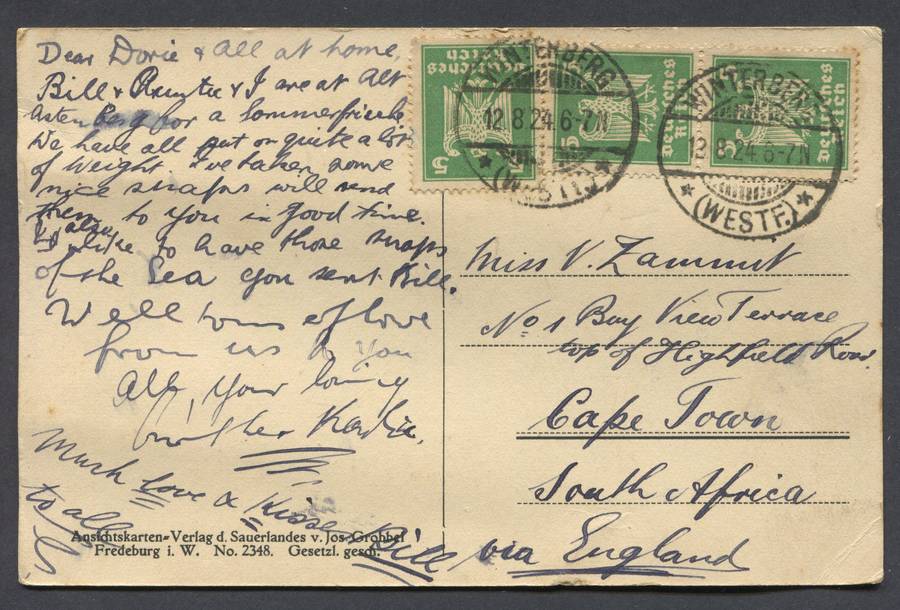 Dear Dorie & All at home,
Bill & & I are at Alt
Astenberg for a Sommerfrische
We have all put on quite a lot
of weight I've taken some
nice snaps will send
them to you in good time.
I'd also like to have those snaps
of the Sea you sent Bill.
Well tons of love
from us to you
All, your loving
Much Love & Kisses
to all
Bill
Ansichtskarten-Verlag d. Sauerlandes v. Jos. Grobbel
Fredeburg i. W. No. 2348. Gesetzl. gesch.
Deutsches Reich
5
Deutsches Reich
5
Deutsches Reich
5
WINTERBERG
12.8.24.6-7N
(WESTF.)
WINTERBERG
12.8.24.6-7N
(WESTF.)
Miss V. Zammit
No 1 Bay View Terrace
top of Highfield Road.
Cape Town
South Africa
via England